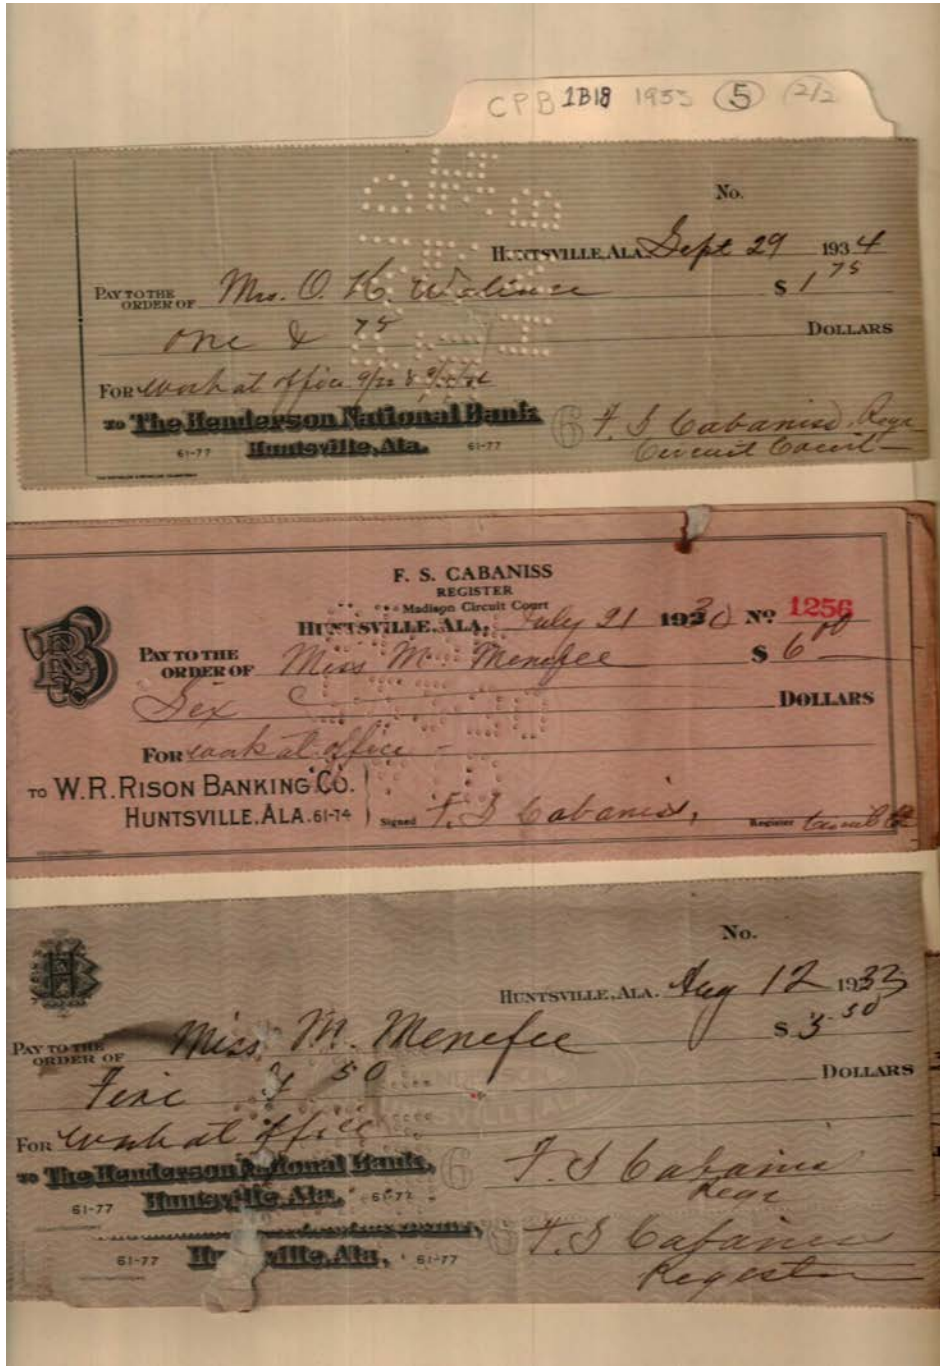 CPB 1B18 1933 5 2/2
No.
HUNTSVILLE, ALA. Sept 29 1934
PAY TO THE ORDER OF Mrs. O. K. $ 1 75
One & 75 DOLLARS
FOR work at office 9/22 &
TO The Henderson National Bank
Huntsville, Ala.
61-77 61-77
F. S. Cabaniss, Regr
Circuit Court
F. S. CABANISS
REGISTER
Madison Circuit Court
HUNTSVILLE, ALA. July 21 1930 No 1256
PAY TO THE ORDER OF Miss M. Menefee $ 6 00
Six DOLLARS
FOR work at office
TO W. R. RISON BANKING CO.
HUNTSVILLE, ALA. 61-74
Signed F. S. Cabaniss, Register
No.
HUNTSVILLE, ALA. Aug 12 1933
PAY TO THE ORDER OF Miss M. Menefee $ 5 50
Five & 50 DOLLARS
FOR work at office
TO The Henderson National Bank,
Huntsville, Ala.
61-77 61-77
F. S. Cabaniss
Regr
Huntsville, Ala.
61-77 61-77
F. S. Cabaniss
Register